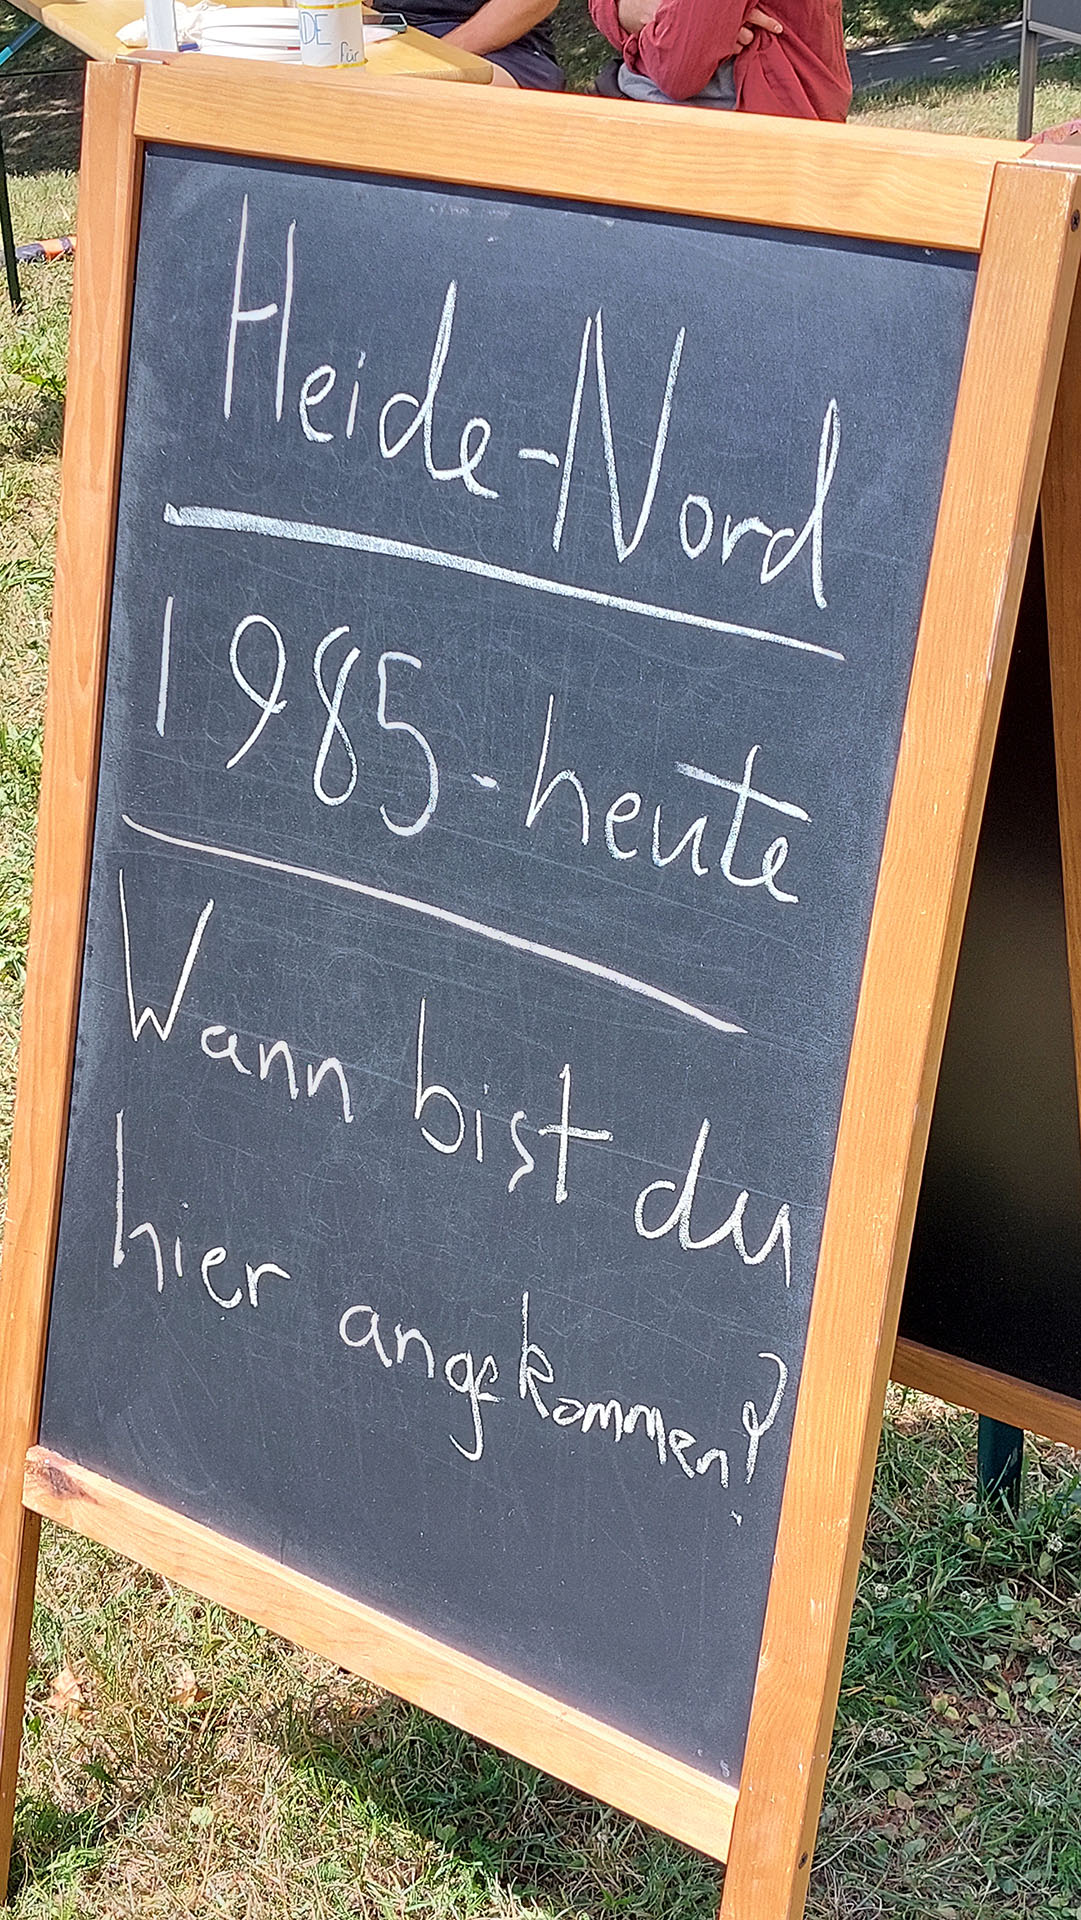 DE
für
Heide-Nord
1985-heute
Wann bist du
hier angekommen?